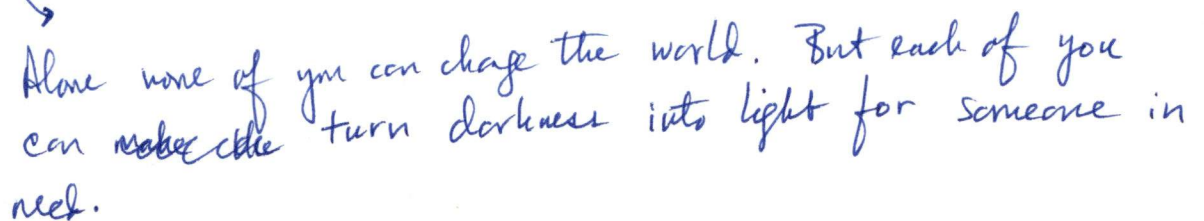 Alone none of you can change the world. But each of you
can turn darkness into light for someone in
need.